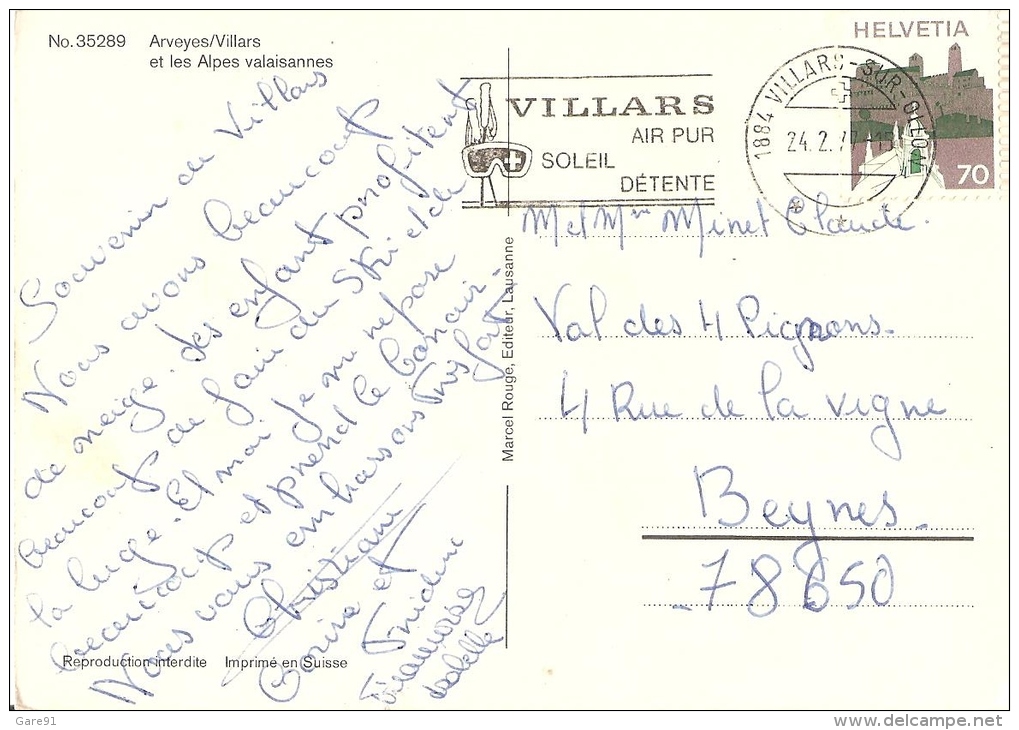 No. 35289 Arveyes/Villars
et les Alpes valaisannes
HELVETIA
70
1884 VILLARS-SUR-OLLON
24.2.77-15
VILLARS
AIR PUR
SOLEIL
DÉTENTE
Souvenir de Villars
Nous avons beaucoup
de neige. des enfant profitent
beaucoup de faire du Ski et de
la luge. Et moi je me repose
beaucoup et prend le
Nous vous embrassons très fort
Christiane
Corine et
M et Mme Minet Claude.
Val des 4 Pignons.
4 Rue de la vigne
Beynes.
78650
Marcel Rouge, Editeur, Lausanne
Reproduction interdite Imprimé en Suisse
Gare91
www.delcampe.net